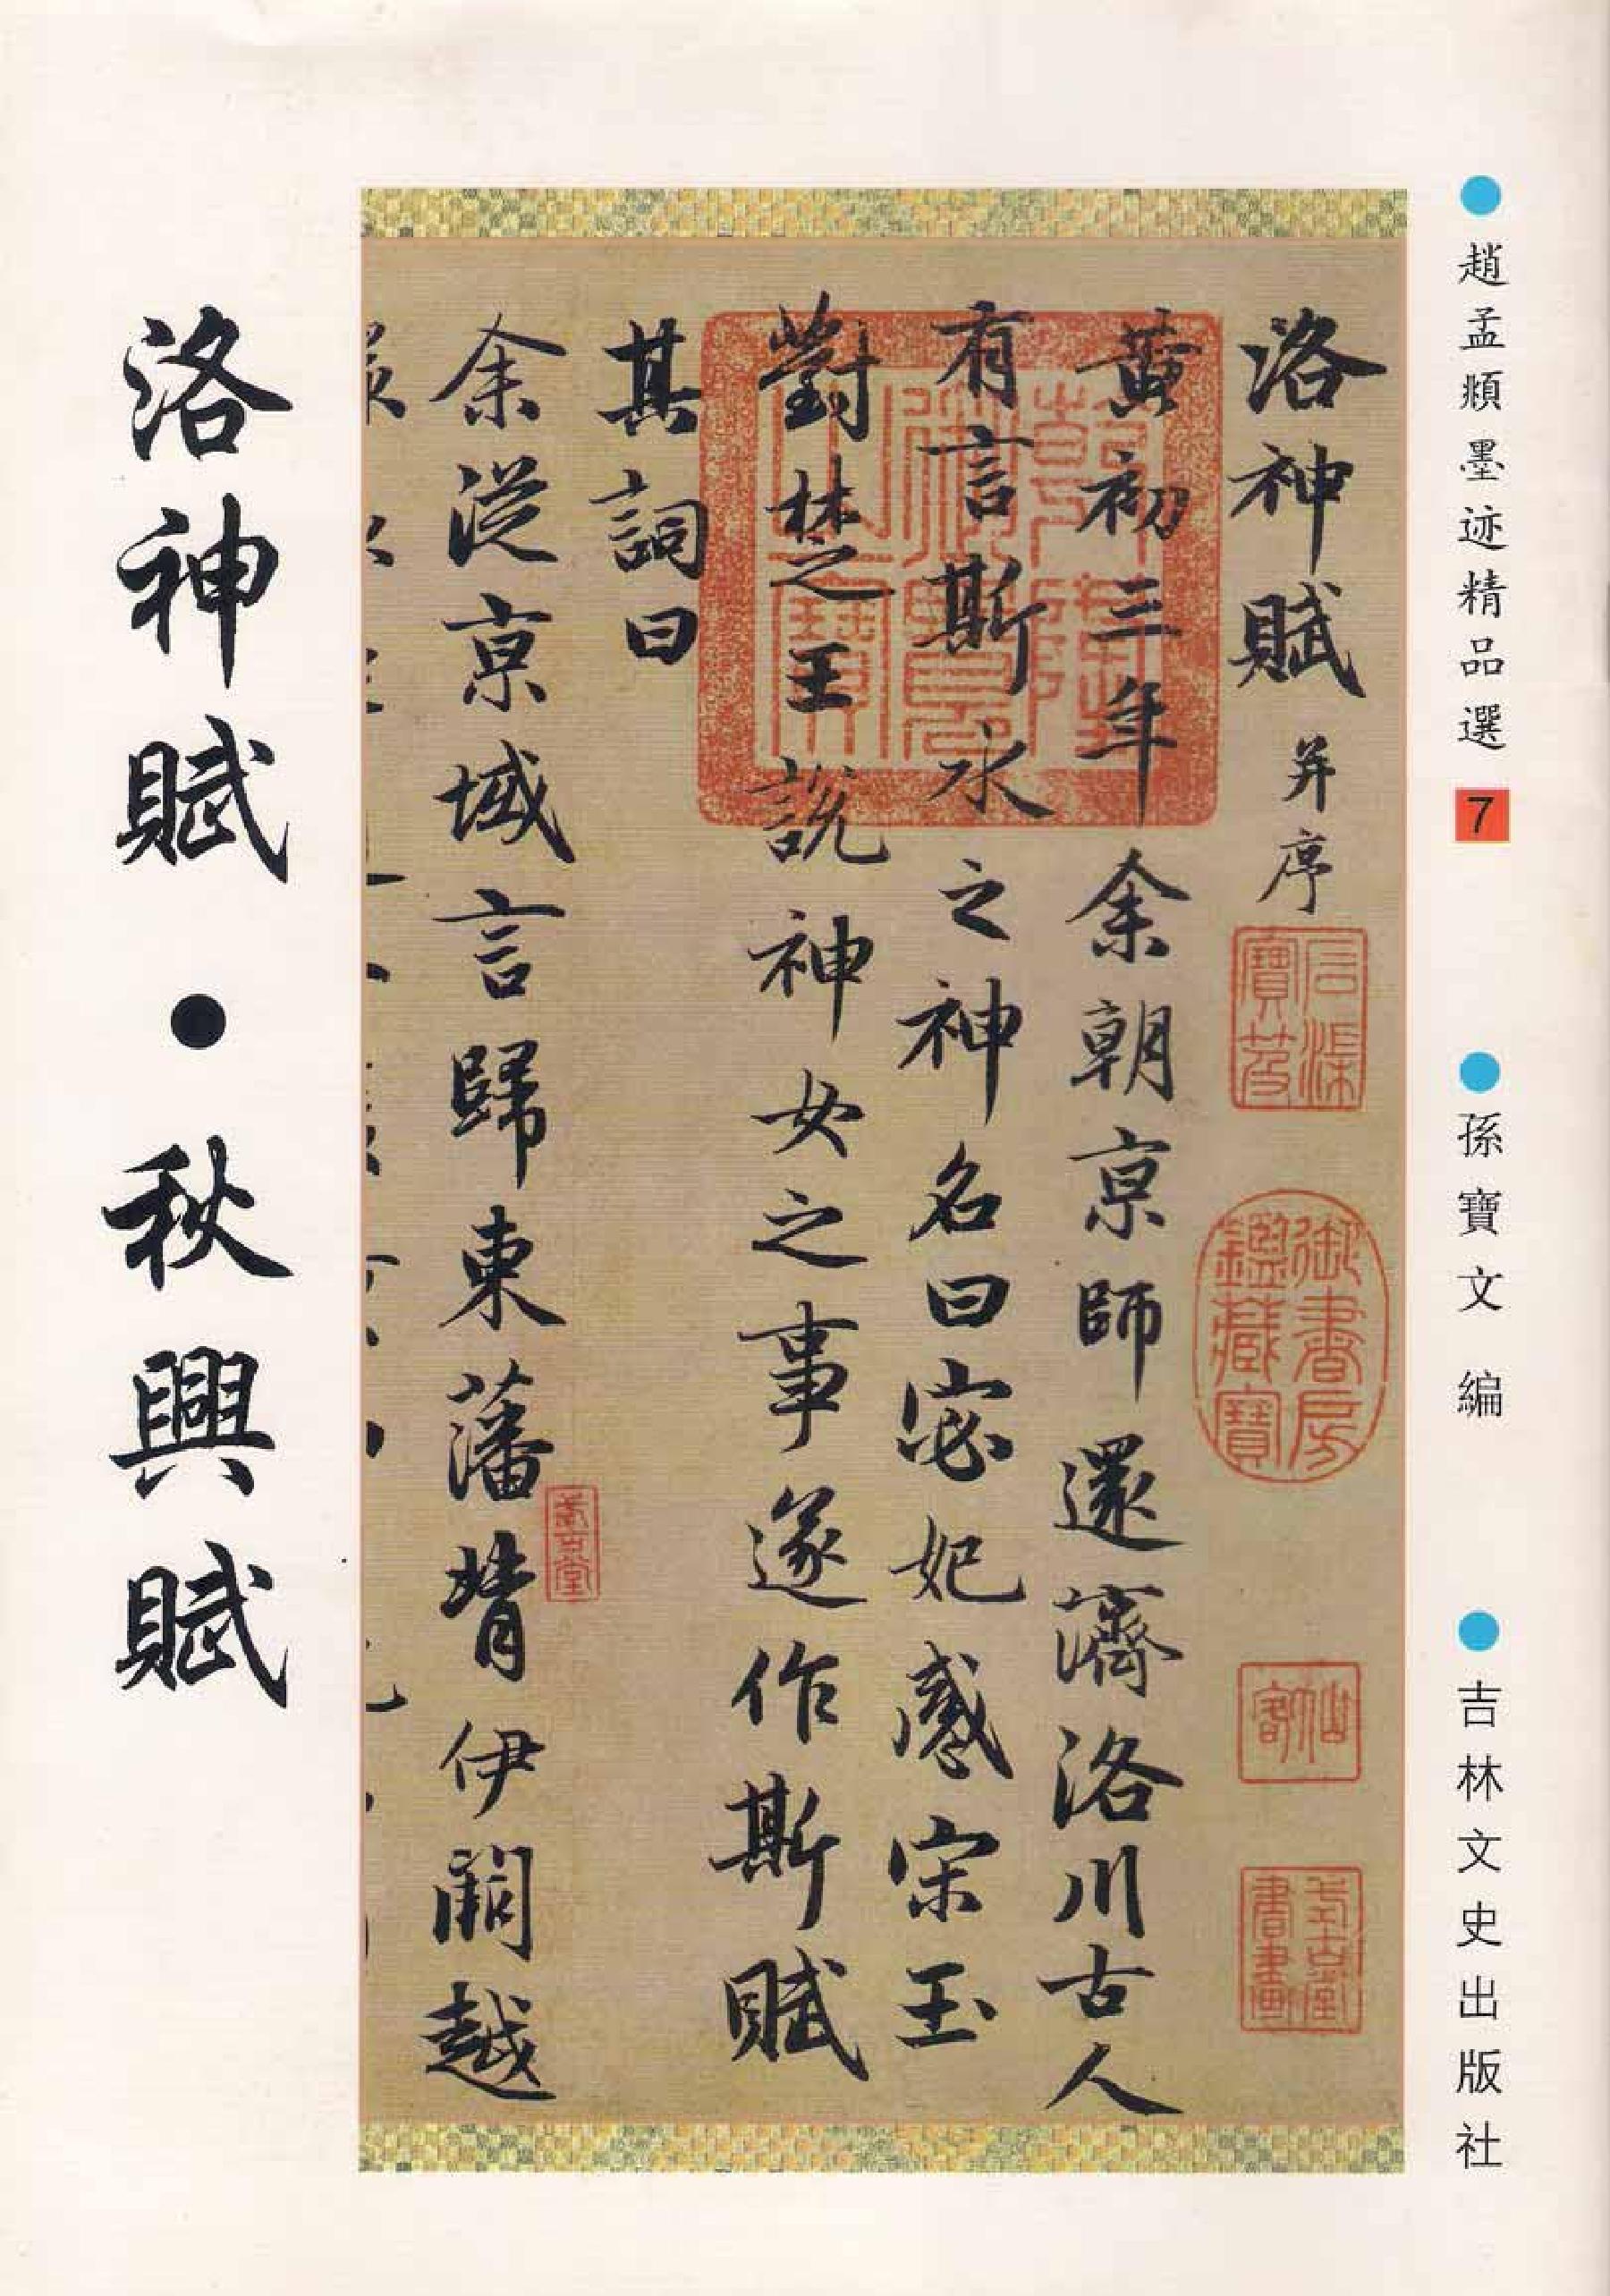 趙孟頫墨迹精品選 7
孫寶文 編
吉林文史出版社
洛神賦 并序
黃初三年余朝京師還濟洛川古人
有言斯水之神名曰宓妃感宋玉
對楚之王說神女之事遂作斯賦
其詞曰
余從京域言歸東藩背伊闕越
洛神賦·秋興賦
石渠寶笈
御書房鑑藏寶